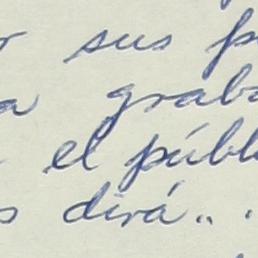 r sus p
a graba
el públ
s dirá...